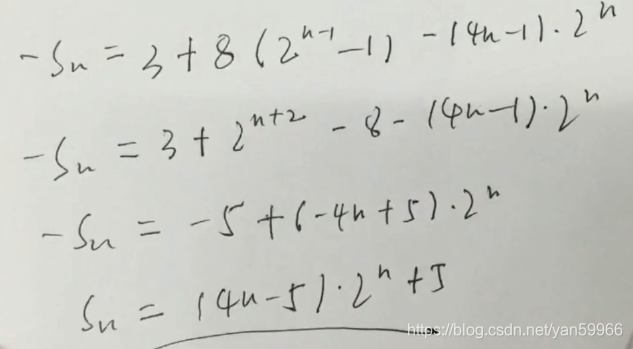 -Sn = 3 + 8(2^{n-1} - 1) - (4n-1)·2^n
-Sn = 3 + 2^{n+2} - 8 - (4n-1)·2^n
-Sn = -5 + (-4n+5)·2^n
Sn = (4n-5)·2^n + 5
https://blog.csdn.net/yan59966